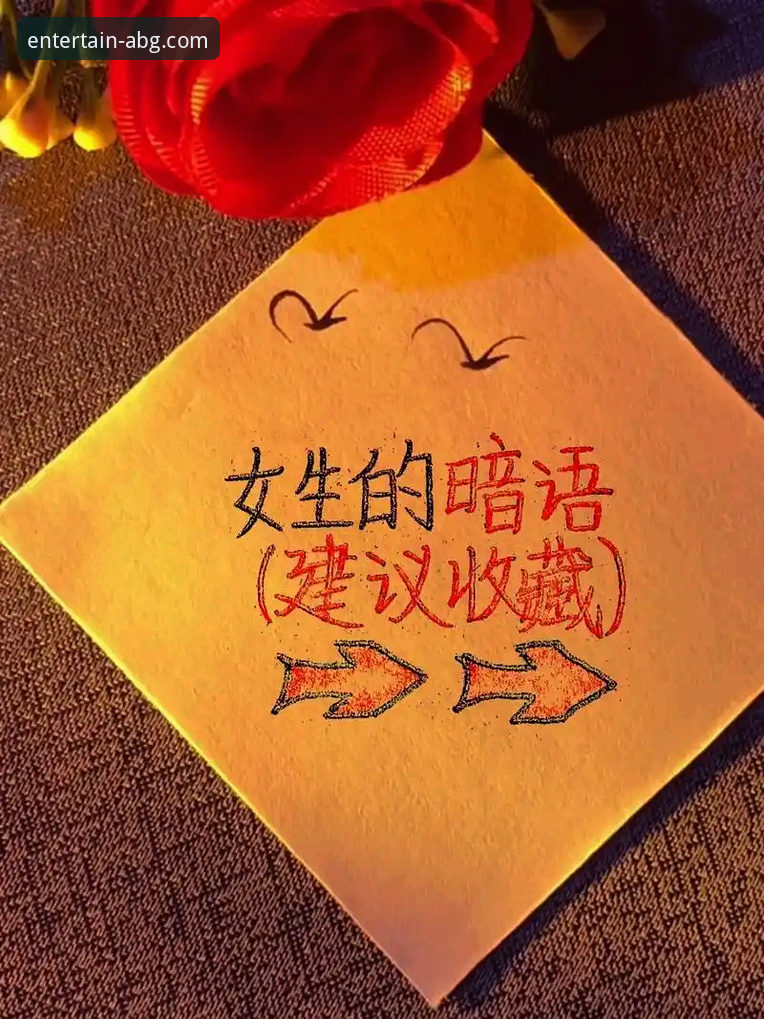 entertain-abg.com
女生的暗语
(建议收藏)